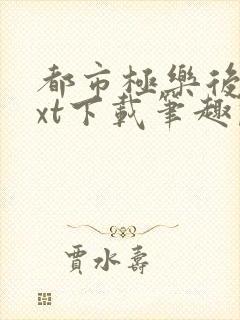 都市極樂後
xt下載筆趣
賈水壽